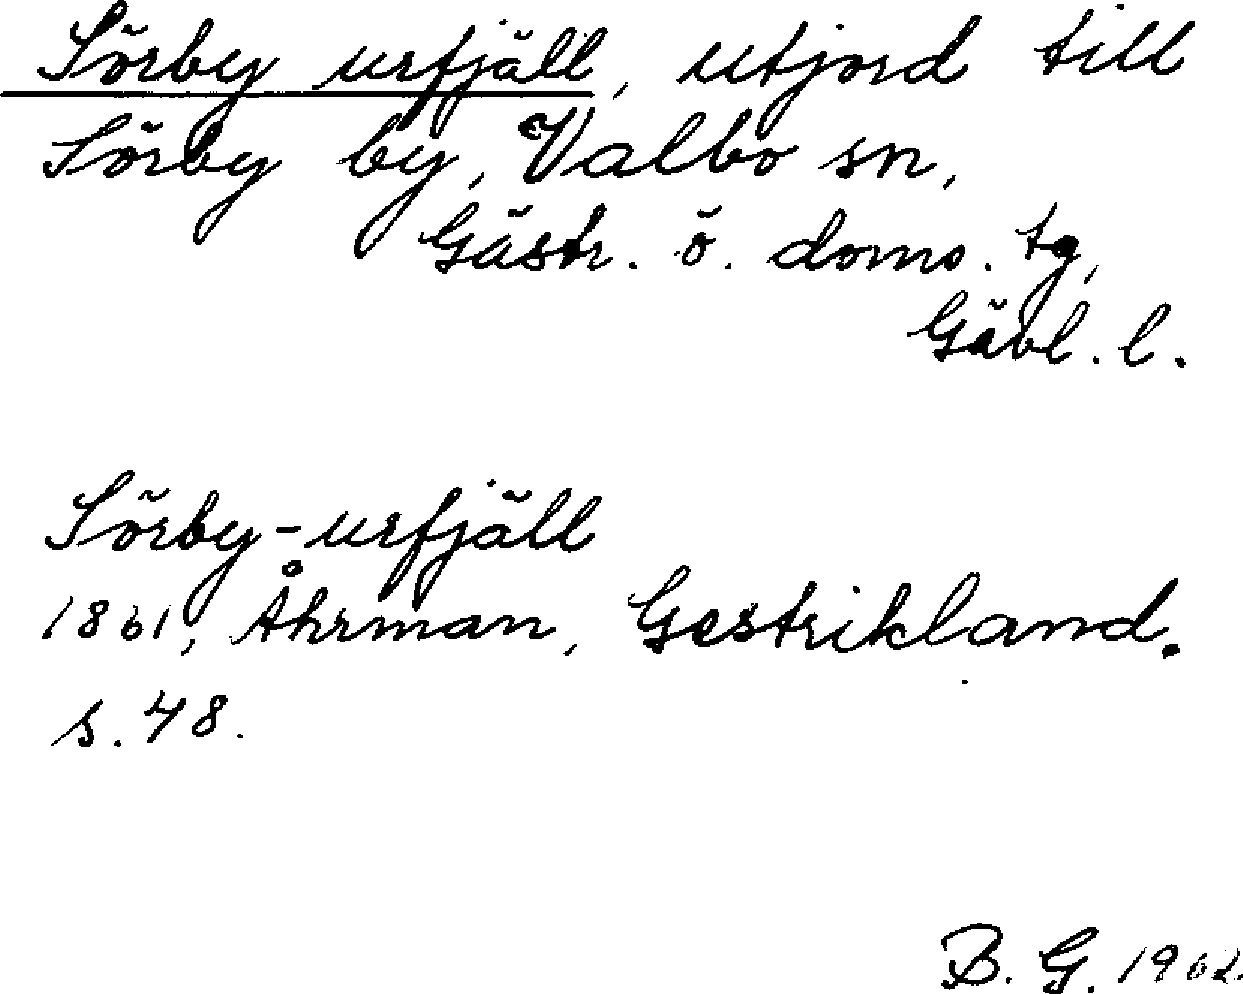 Sörby urfjäll, utjord till
Sörby by, Valbo sn,
Gästr. ö. doms. tg,
Gävl. l.
Sörby-urfjäll
1861, Åhrman, Gestrikland.
s. 48.
B. G. 1962.